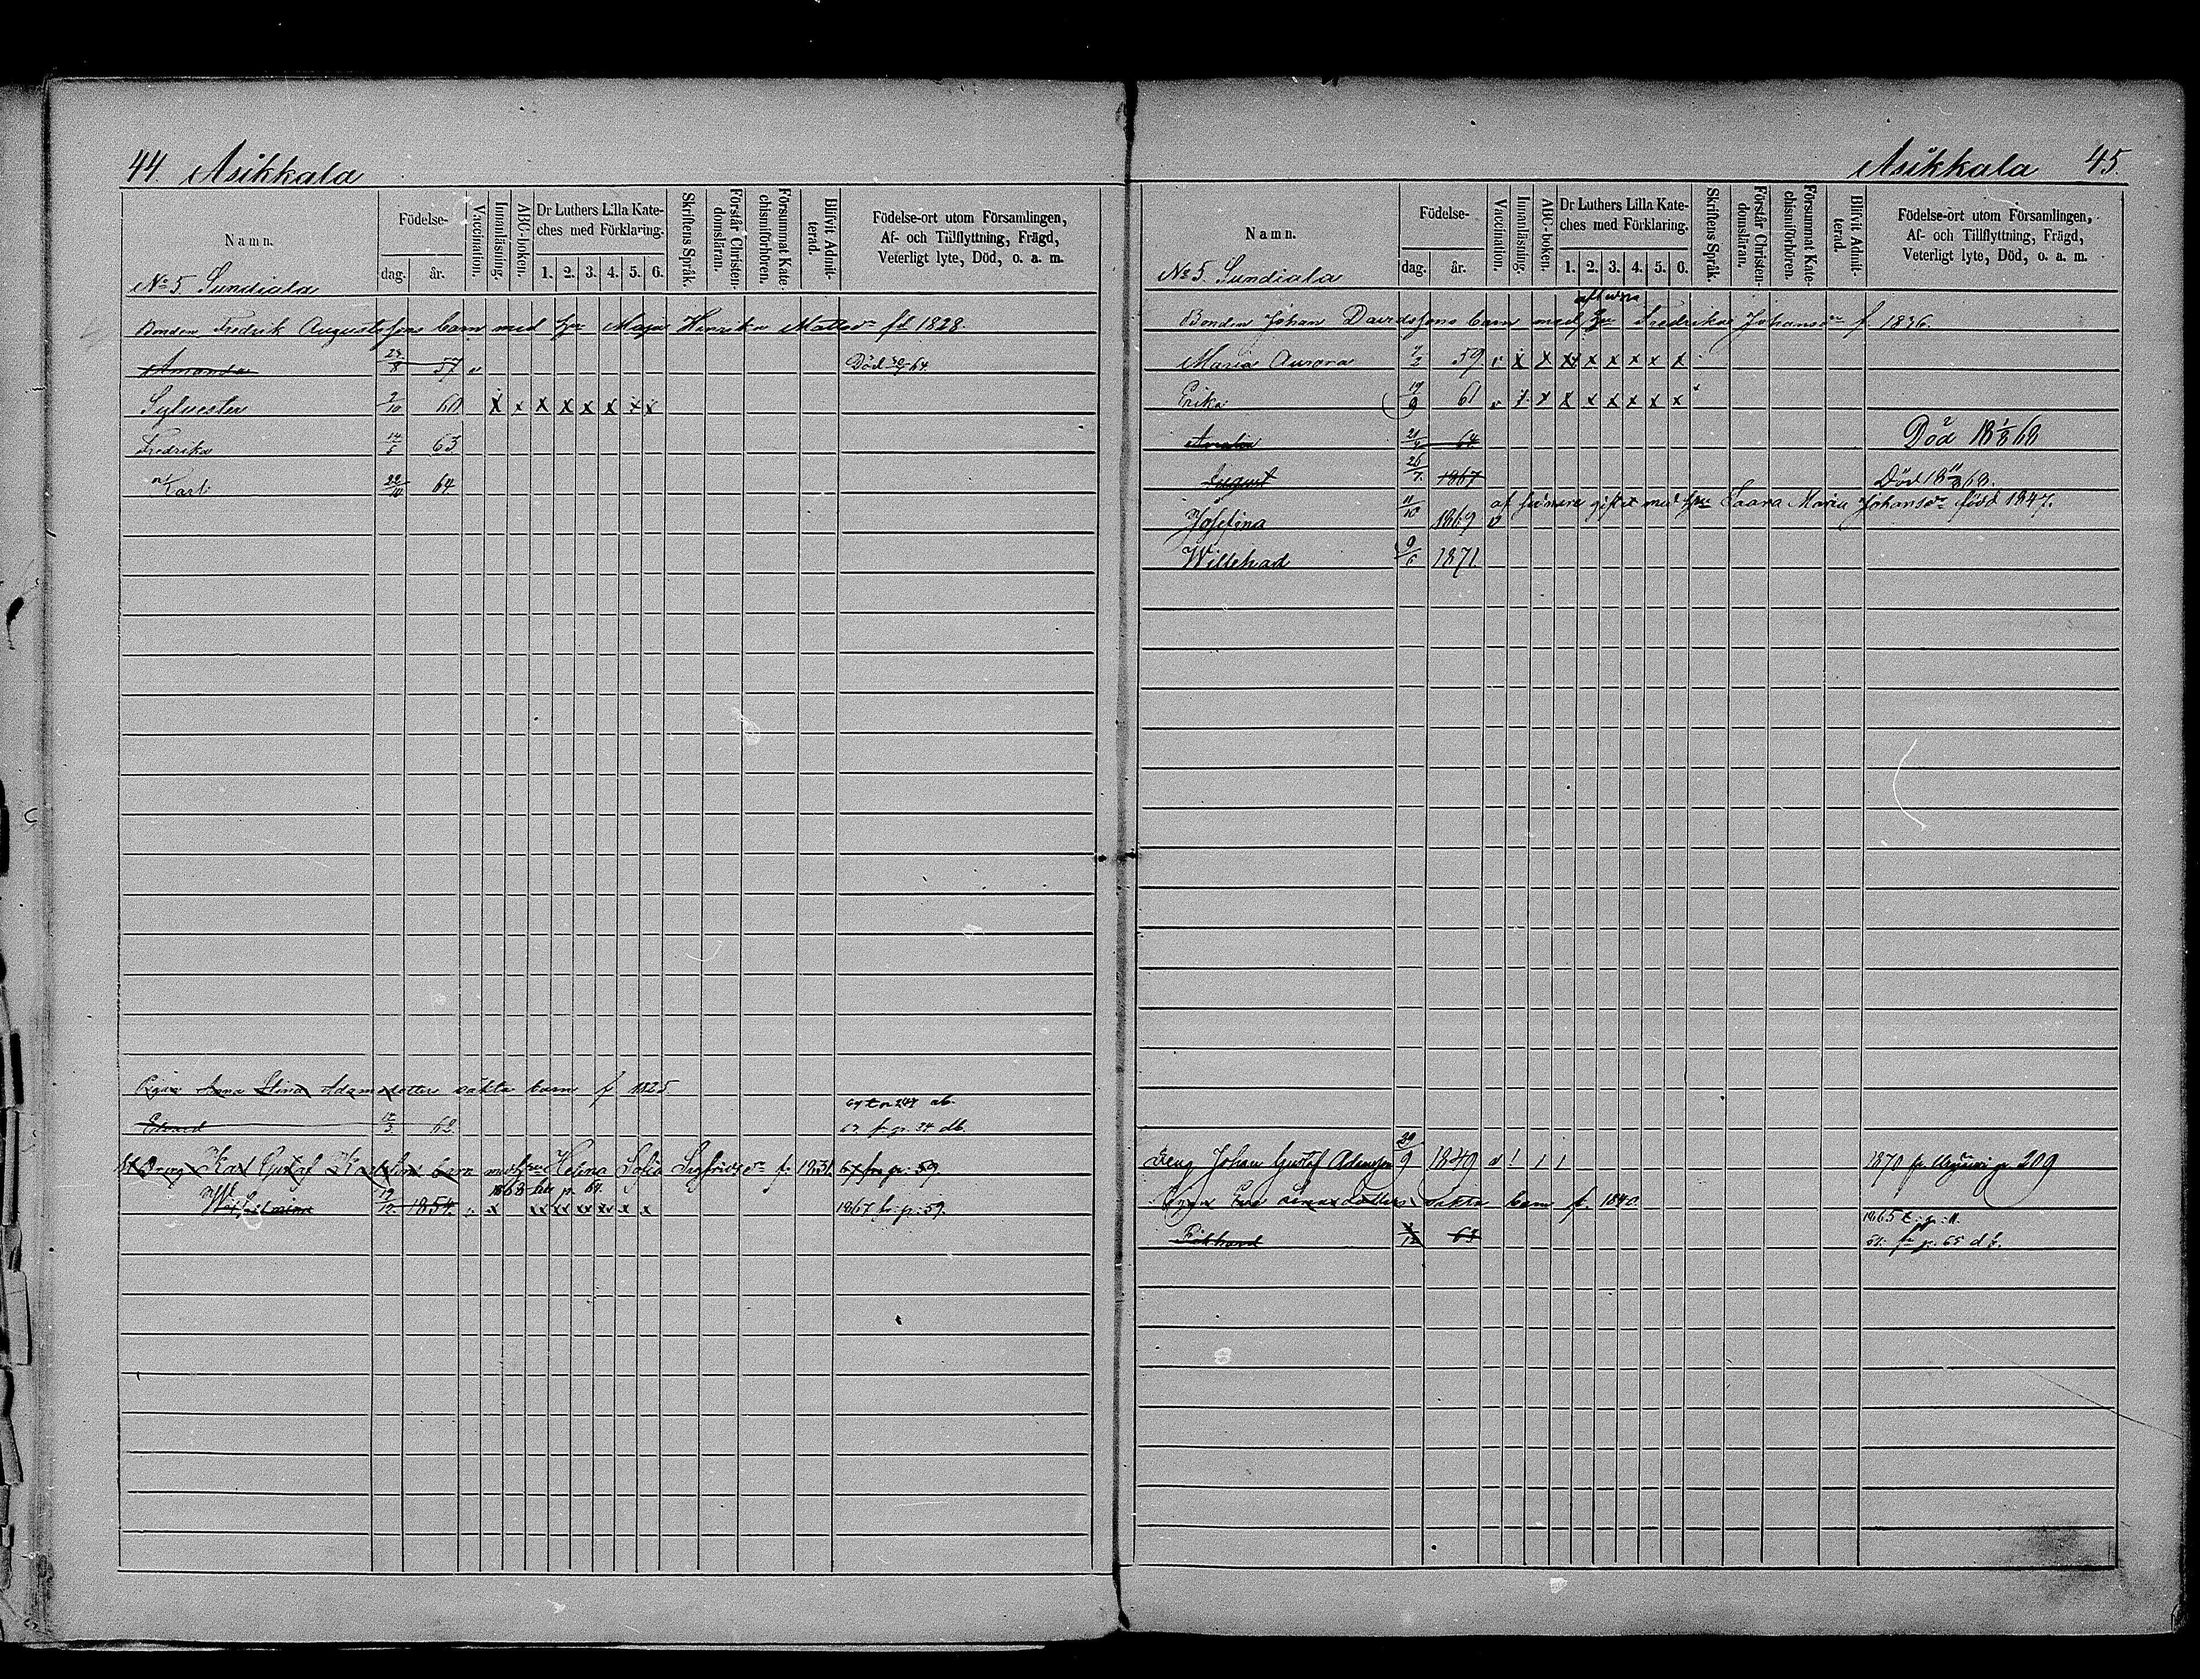 44. Asikkala
Namn.
Födelse-
dag.
år.
Vaccination.
Innanläsning.
ABC-boken.
Dr Luthers Lilla Kate-
ches med Förklaring.
1. 2. 3. 4. 5. 6.
Skriftens Språk.
Förstår Christen-
domsläran.
Försummat Kate-
chismiförhören.
Blifvit Admit-
terad.
Födelse-ort utom Församlingen,
Af- och Tillflyttning, Frägd,
Veterligt lyte, Död, o. a. m.
No 5. Sundiala
Bonden Fredrik Augustssons barn med Hu Maja Henrika Mattsdr fd 1828.
Amanda 57 v Död 64
Sylvester 2/10 60 x x x x x x x x
Fredrika 14/5 63
Karl 22/10 64
Anna Stina Adamsdotter oäkta barn f 1825
Edvard 62 p. 34 db.
Karl Gustaf barn med Helena Sofia f. 1831 67 fr p: 59
19/12 1854. v x xx xx xx xx x x 1867 fr: p: 59.
Asikkala 45.
Namn.
Födelse-
dag.
år.
Vaccination.
Innanläsning.
ABC-boken.
Dr Luthers Lilla Kate-
ches med Förklaring.
1. 2. 3. 4. 5. 6.
Skriftens Språk.
Förstår Christen-
domsläran.
Försummat Kate-
chismiförhören.
Blifvit Admit-
terad.
Födelse-ort utom Församlingen,
Af- och Tillflyttning, Frägd,
Veterligt lyte, Död, o. a. m.
No 5. Sundiala
Bonden Johan Davidssons barn med Hu Fredrika Johansdr f. 1836.
Maria Aurora 59. v x x x x x x x x
Erika 19/9 61 v x x x x x x x x
64 Död 18 1/3 68
August 26/7. 1867 Död 18 68.
af sednare giftet med Hu Saara Maria Johansdr född 1847.
Josefina 11/10 1869 v
Willehad 9/6 1871.
Dreng Johan Gustaf Adamsson 29/9 1849 v 1 1 1 1870 fr p 209
Eva oäkta barn f. 1840.
1865 t: p: 11.
Rikhard 63 fr p. 65 db.